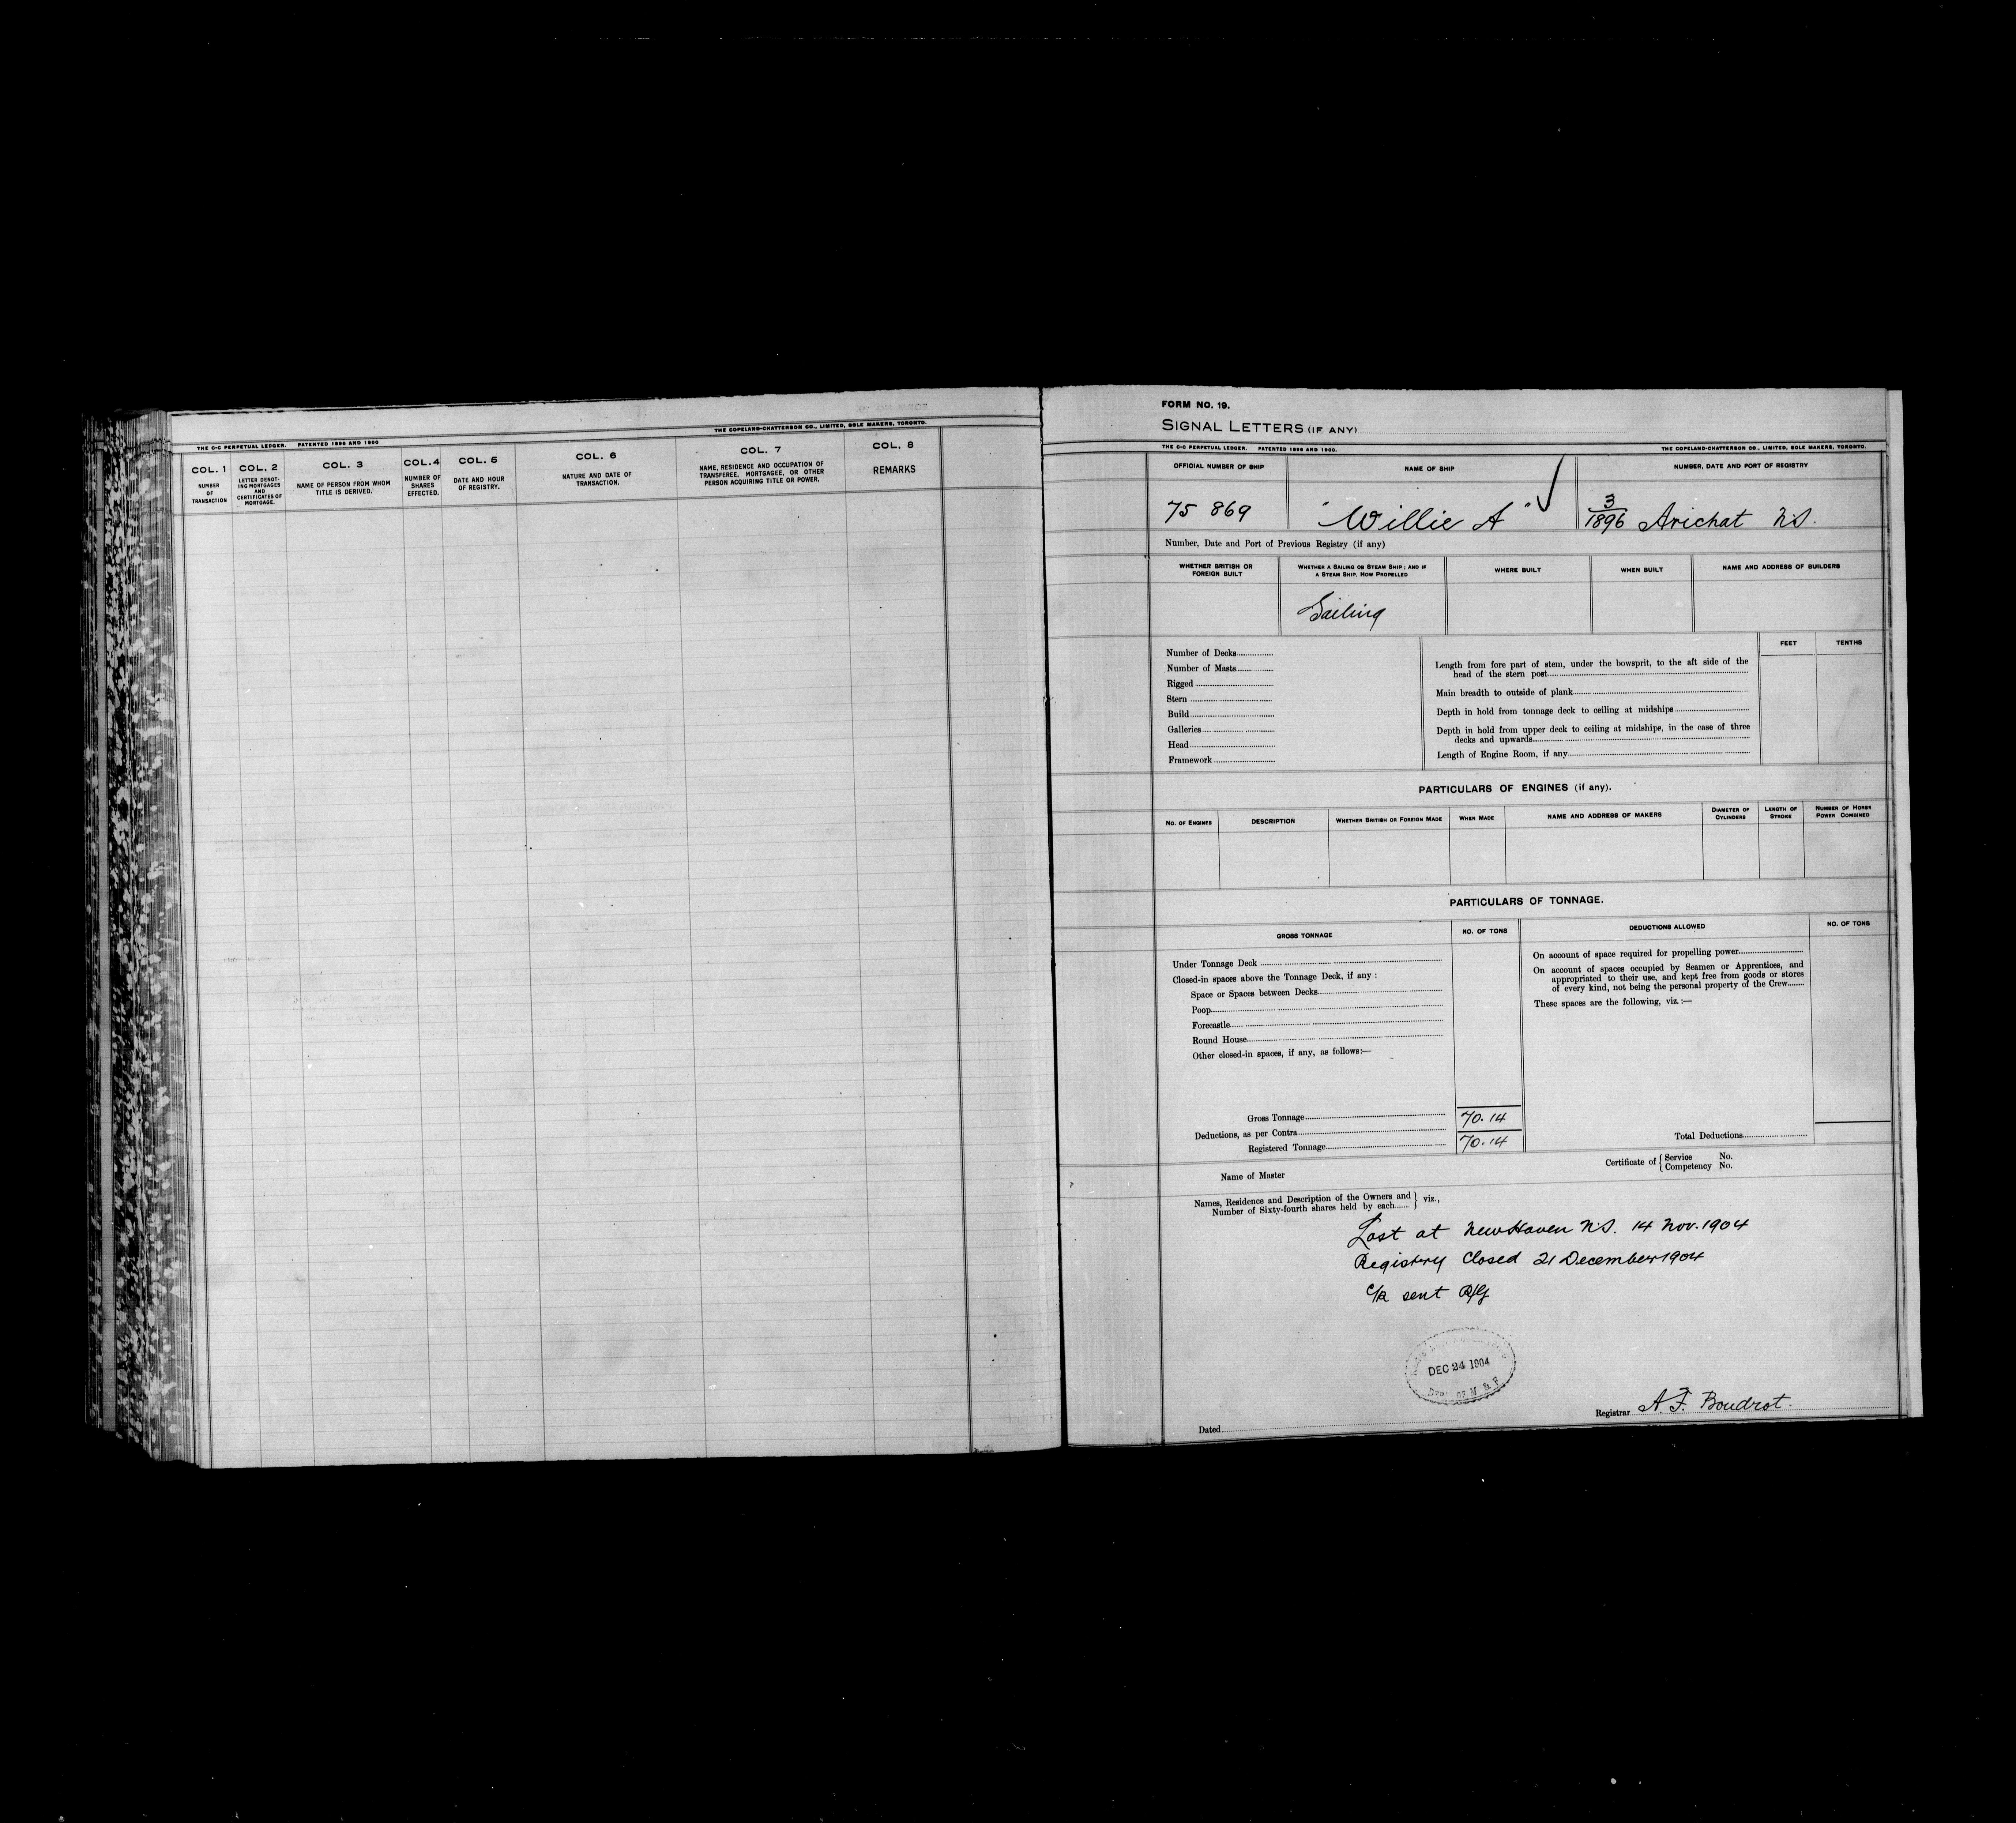 THE C-C PERPETUAL LEDGER. PATENTED 1896 AND 1900
THE COPELAND-CHATTERSON CO., LIMITED, SOLE MAKERS, TORONTO.
COL. 1
NUMBER
OF
TRANSACTION
COL. 2
LETTER DENOT-
ING MORTGAGES
AND
CERTIFICATES OF
MORTGAGE.
COL. 3
NAME OF PERSON FROM WHOM
TITLE IS DERIVED.
COL. 4
NUMBER OF
SHARES
EFFECTED.
COL. 5
DATE AND HOUR
OF REGISTRY.
COL. 6
NATURE AND DATE OF
TRANSACTION.
COL. 7
NAME, RESIDENCE AND OCCUPATION OF
TRANSFEREE, MORTGAGEE, OR OTHER
PERSON ACQUIRING TITLE OR POWER.
COL. 8
REMARKS
FORM NO. 19.
SIGNAL LETTERS (IF ANY)
THE C-C PERPETUAL LEDGER. PATENTED 1896 AND 1900.
THE COPELAND-CHATTERSON CO., LIMITED, SOLE MAKERS, TORONTO.
OFFICIAL NUMBER OF SHIP
NAME OF SHIP
NUMBER, DATE AND PORT OF REGISTRY
75 869
"Willie A"
3/1896 Arichat N.S.
Number, Date and Port of Previous Registry (if any)
WHETHER BRITISH OR
FOREIGN BUILT
WHETHER A SAILING OR STEAM SHIP; AND IF
A STEAM SHIP, HOW PROPELLED
WHERE BUILT
WHEN BUILT
NAME AND ADDRESS OF BUILDERS
Sailing
Number of Decks
Number of Masts
Rigged
Stern
Build
Galleries
Head
Framework
FEET
TENTHS
Length from fore part of stem, under the bowsprit, to the aft side of the
head of the stern post
Main breadth to outside of plank
Depth in hold from tonnage deck to ceiling at midships
Depth in hold from upper deck to ceiling at midships, in the case of three
decks and upwards
Length of Engine Room, if any
PARTICULARS OF ENGINES (if any).
NO. OF ENGINES
DESCRIPTION
WHETHER BRITISH OR FOREIGN MADE
WHEN MADE
NAME AND ADDRESS OF MAKERS
DIAMETER OF
CYLINDERS
LENGTH OF
STROKE
NUMBER OF HORSE
POWER COMBINED
PARTICULARS OF TONNAGE.
GROSS TONNAGE
NO. OF TONS
DEDUCTIONS ALLOWED
NO. OF TONS
Under Tonnage Deck
Closed-in spaces above the Tonnage Deck, if any :
Space or Spaces between Decks
Poop
Forecastle
Round House
Other closed-in spaces, if any, as follows:—
On account of space required for propelling power
On account of spaces occupied by Seamen or Apprentices, and
appropriated to their use, and kept free from goods or stores
of every kind, not being the personal property of the Crew
These spaces are the following, viz.:—
Gross Tonnage 70.14
Deductions, as per Contra
Registered Tonnage 70.14
Total Deductions
Name of Master
Certificate of { Service No.
Competency No.
Names, Residence and Description of the Owners and } viz.,
Number of Sixty-fourth shares held by each
Lost at New Haven N.S. 14 Nov. 1904
Registry Closed 21 December 1904
C/R sent R/G
DEC 24 1904
DEPT OF M & F
Registrar A. F. Boudrot.
Dated